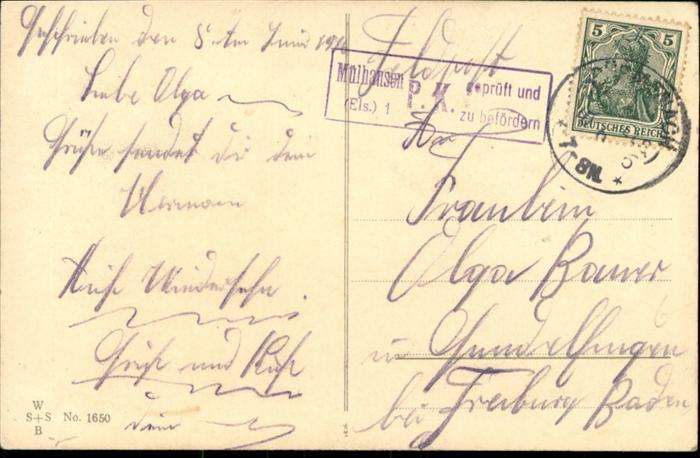 Geschrieben den 8 ten Juni 191
Liebe Olga
Grüße sendet dir dein
Hermann
Auf Wiedersehn
Gruß und Kuß
dein
W
S+S No. 1650
B
Feldpost
Mülhausen P. K. geprüft und
(Els.) 1 zu befördern
An
Fraulein
Olga Bauer
in Gundelfingen
bei Freiburg Baden
5 5
DEUTSCHES REICH